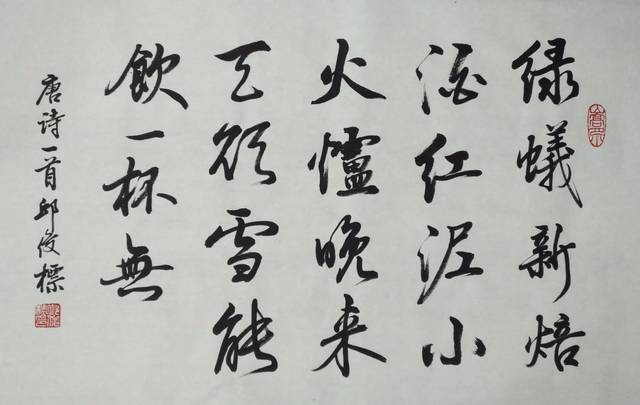 绿蟻新焙
酒红泥小
火爐晚来
天欲雪能
飲一杯無
唐诗一首邱俊標